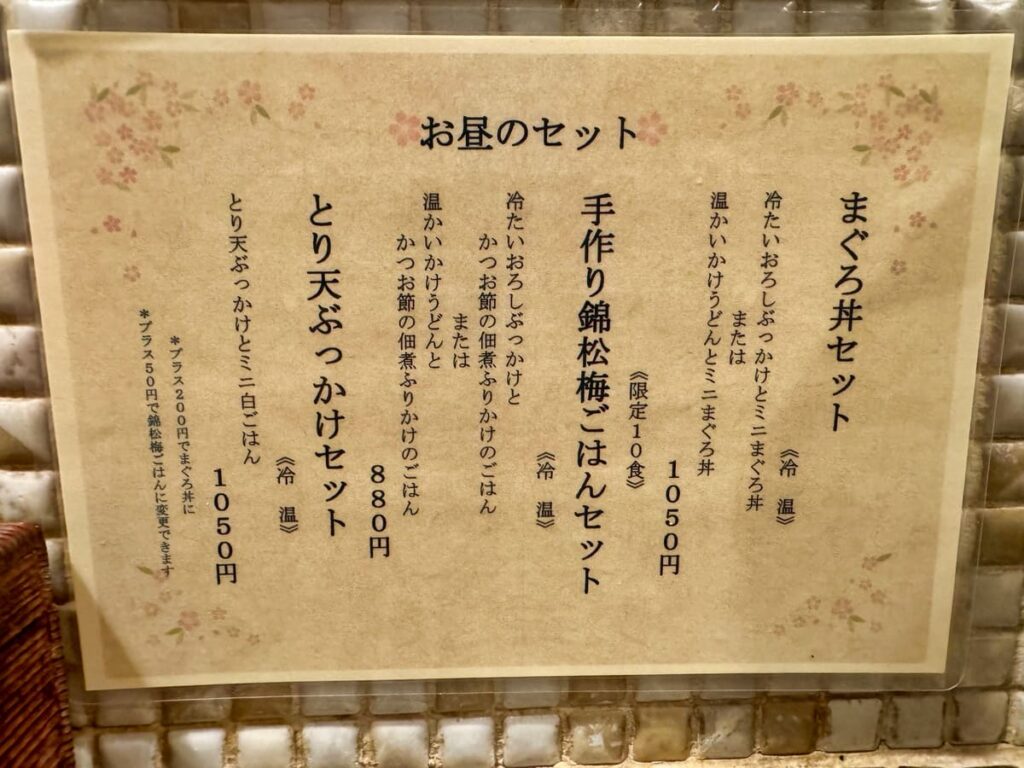 お昼のセット
まぐろ丼セット
《冷　温》
冷たいおろしぶっかけとミニまぐろ丼
または
温かいかけうどんとミニまぐろ丼
1050円
《限定10食》
手作り錦松梅ごはんセット
《冷　温》
冷たいおろしぶっかけと
かつお節の佃煮ふりかけのごはん
または
温かいかけうどんと
かつお節の佃煮ふりかけのごはん
880円
とり天ぶっかけセット
《冷　温》
とり天ぶっかけとミニ白ごはん
1050円
*プラス200円でまぐろ丼に
*プラス50円で錦松梅ごはんに変更できます